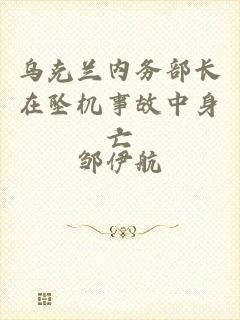 乌克兰内务部长
在坠机事故中身
亡
邹伊航